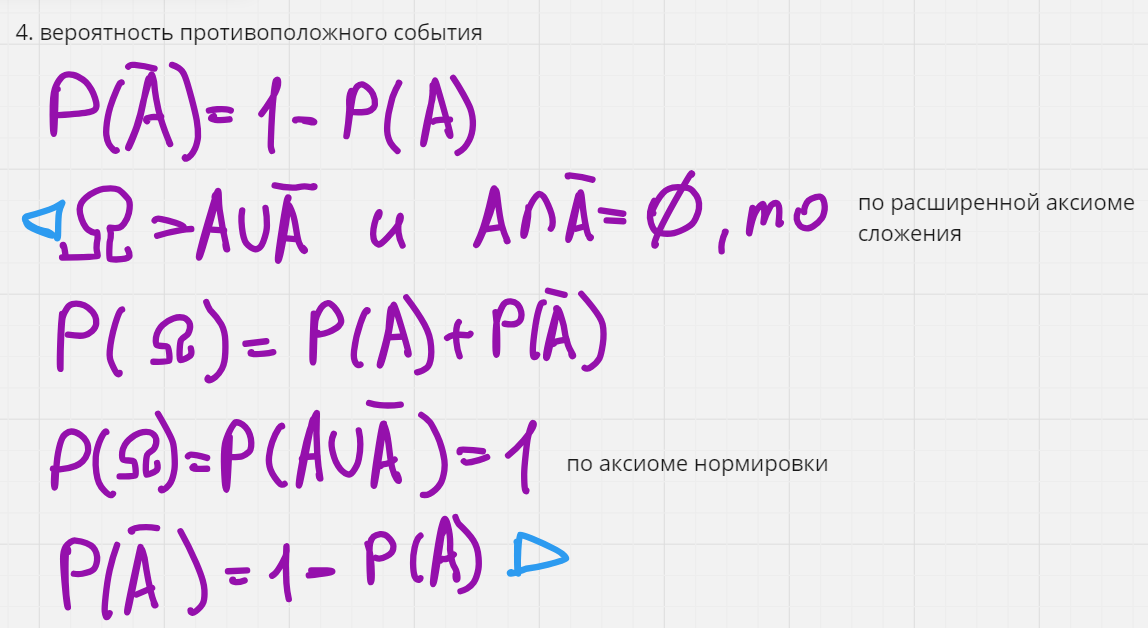 4. вероятность противоположного события
P(Ā) = 1 - P(A)
Ω = A ∪ Ā и A ∩ Ā = ∅, то
по расширенной аксиоме
сложения
P(Ω) = P(A) + P(Ā)
P(Ω) = P(A ∪ Ā) = 1
по аксиоме нормировки
P(Ā) = 1 - P(A)